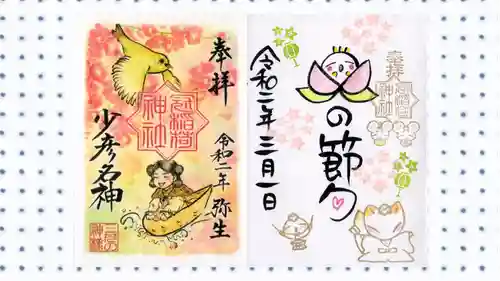 奉拝
冠稲荷
神社
令和二年 弥生
少彦名神
奉拝
冠稲荷
神社
の節句
令和二年 三月一日